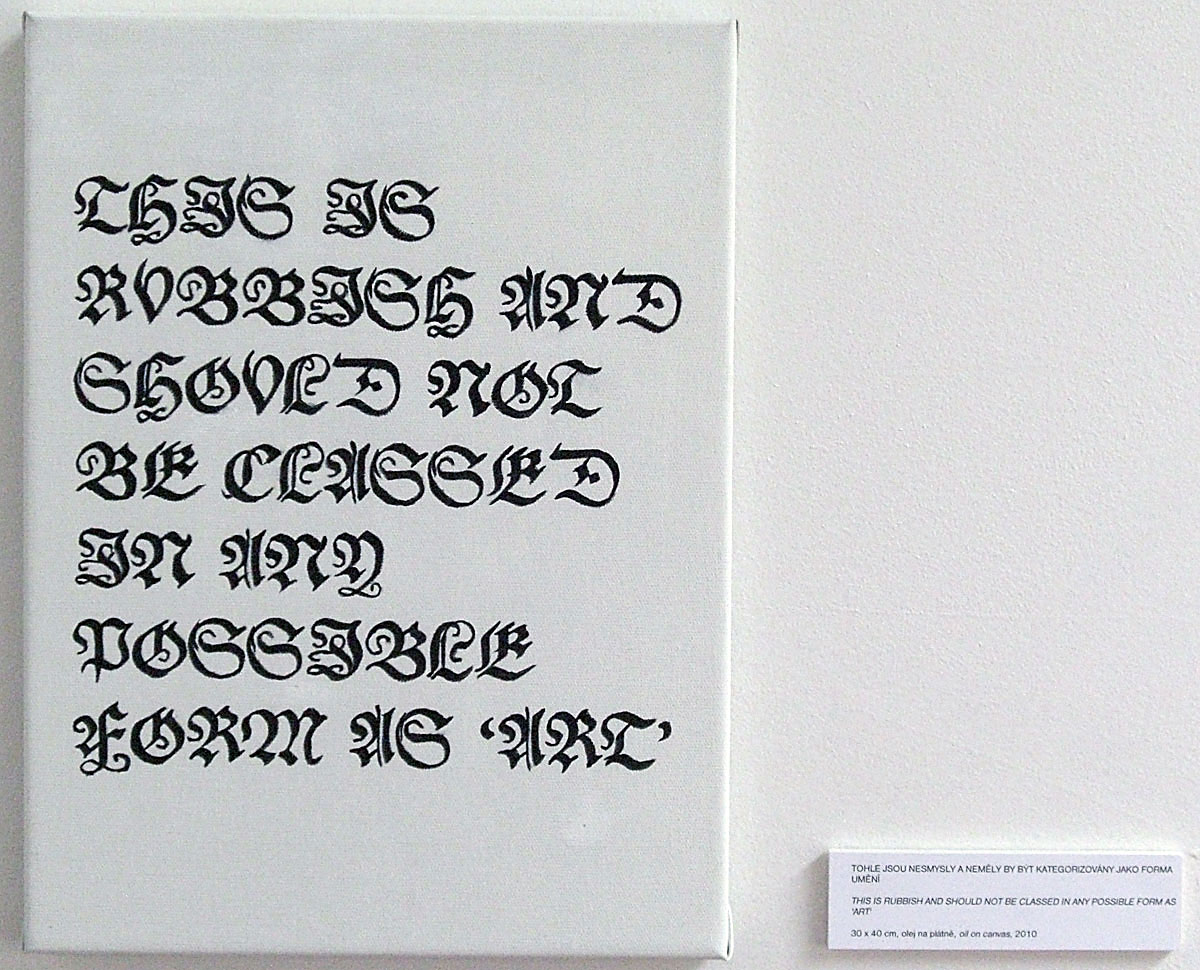 THIS IS
RVBBISH AND
SHOVLD NOT
BE CLASSED
IN ANY
POSSIBLE
FORM AS ‘ART’
TOHLE JSOU NESMYSLY A NEMĚLY BY BÝT KATEGORIZOVÁNY JAKO FORMA
UMĚNÍ
THIS IS RUBBISH AND SHOULD NOT BE CLASSED IN ANY POSSIBLE FORM AS
'ART'
30 x 40 cm, olej na plátně, oil on canvas, 2010